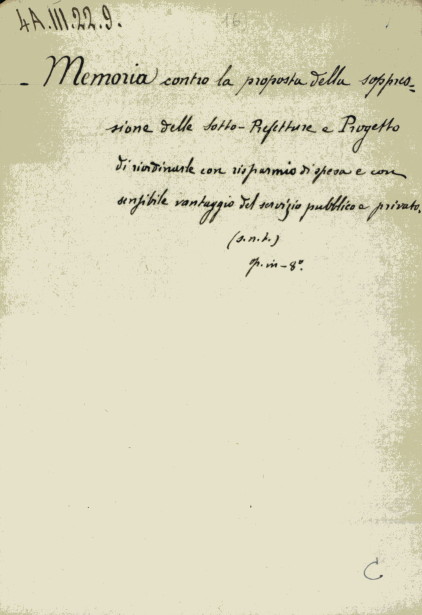 4A.III.22.9.
16
- Memoria contro la proposta della soppres=
sione delle Sotto-Prefetture e Progetto
di riordinarle con risparmio di spesa e con
sensibile vantaggio del servizio pubblico e privato.
(s.n.t.)
op. in-8°.
C